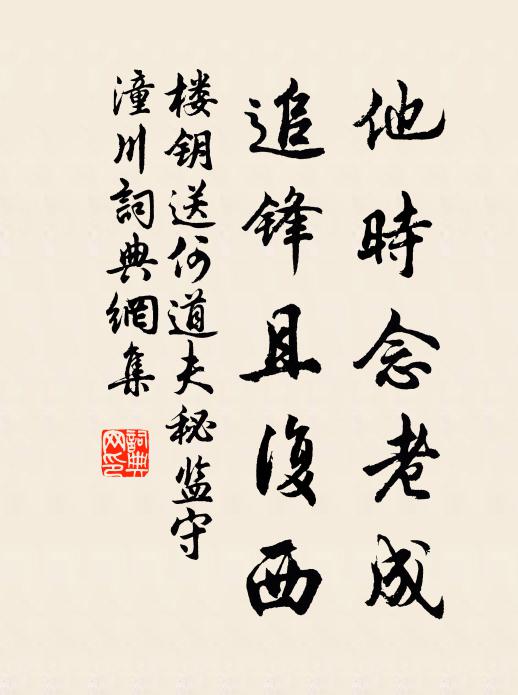 他時念老成
追锋且復西
楼钥送何道夫秘监守
潼川詞典網集
詞典
网印